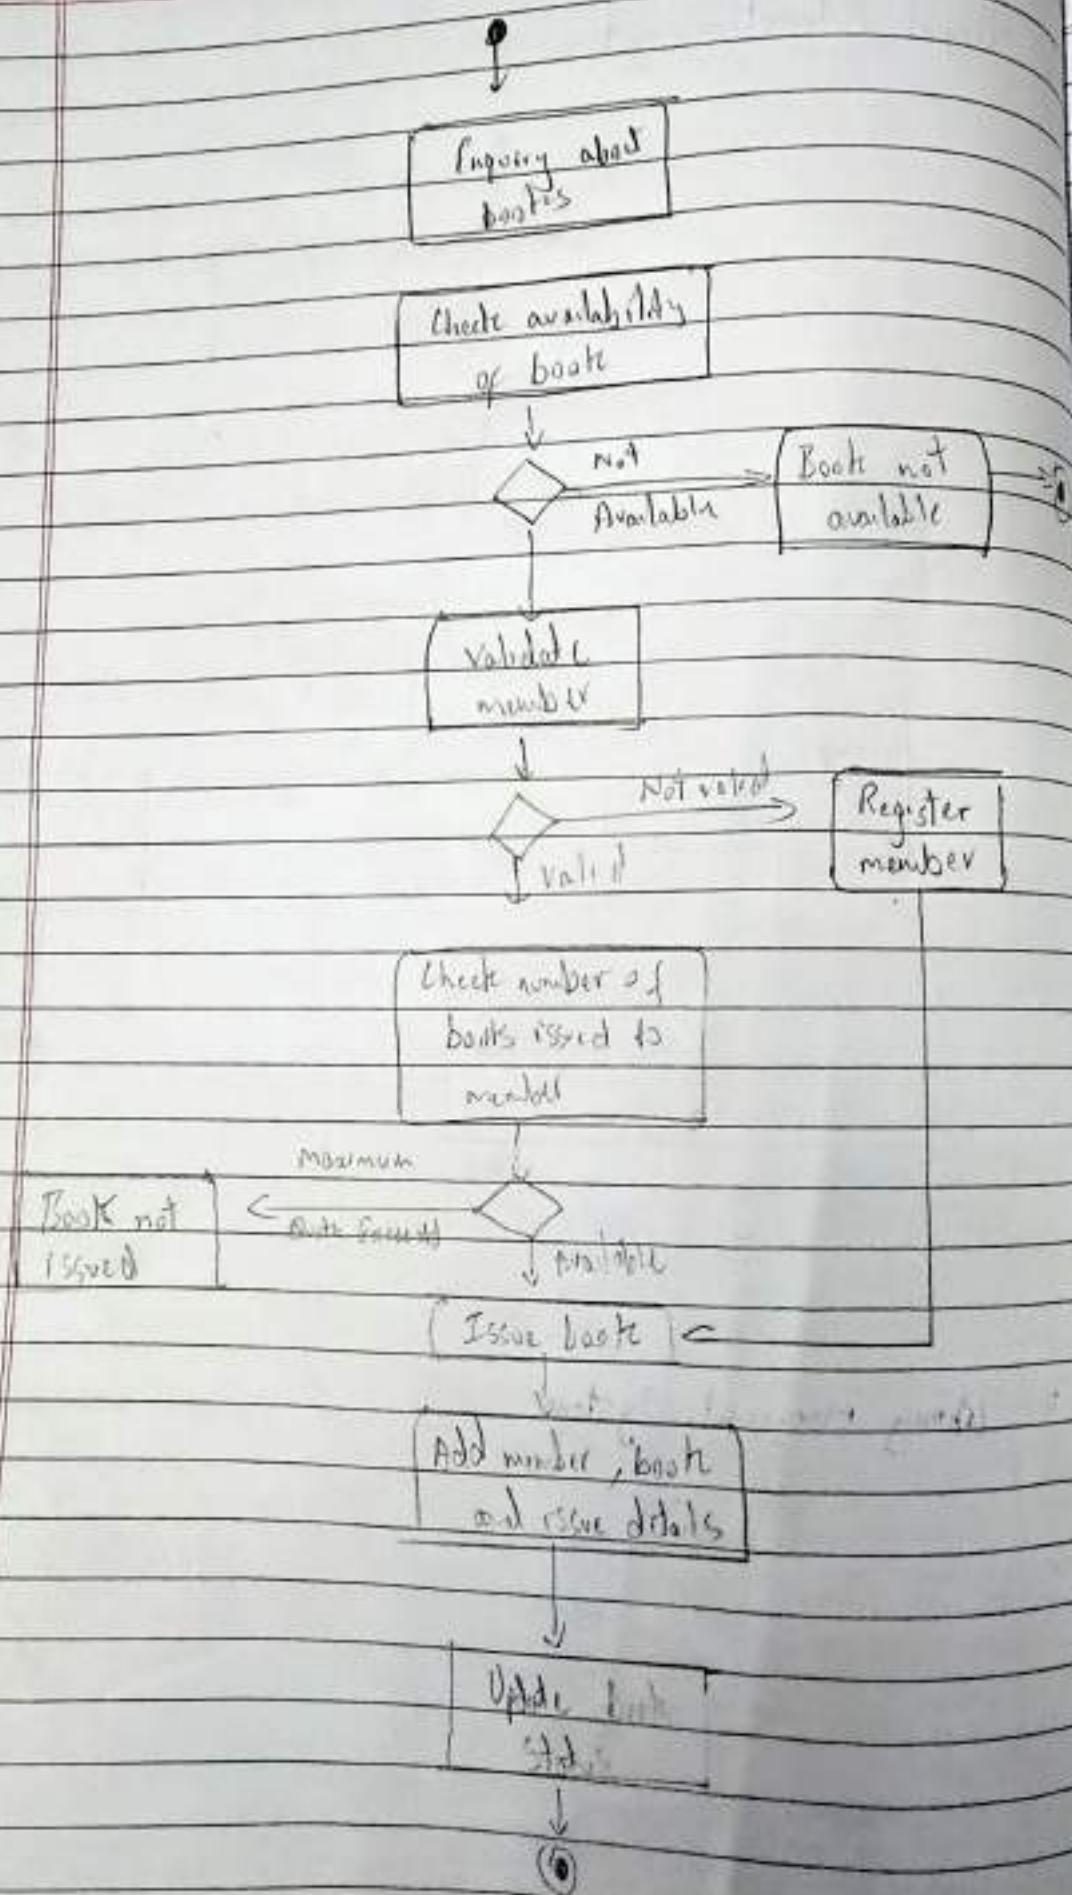 Enquiry about
books
Check availability
of book
Not
Available
Book not
available
Validate
member
Not valid
Register
member
Valid
Check number of
books issued to
member
Maximum
Book not
issued
Available
Issue book
Add member, book
and issue details
Update Book
Status